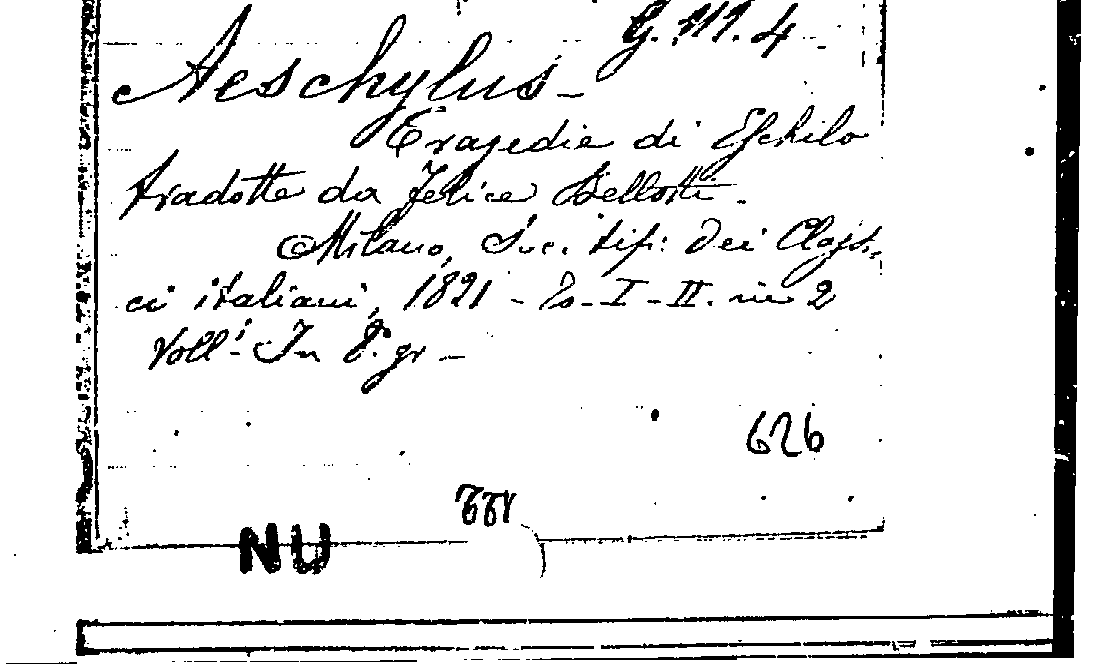 G. III. 4.
Aeschylus -
Tragedie di Eschilo
tradotte da Felice Bellotti.
Milano, Soc. tip: dei Classi-
ci italiani, 1821 - To. I - II. in 2
Voll: In 8.° gr -
626
NU